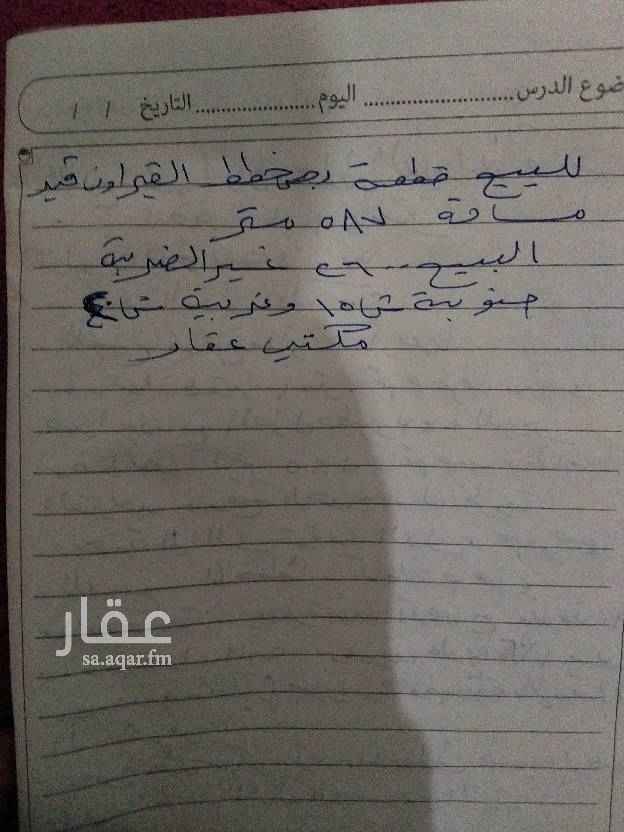 ضوع الدرس .......................... اليوم ..................... التاريخ / /
للبيع قطعة بمخطط القيراون قيد
مساحة ٥٨٧ متر
البيع ٤٦٠٠ غير الضريبة
جنوبية ش١٥ وغربية ش
مكتب عقار
عقار
sa.aqar.fm